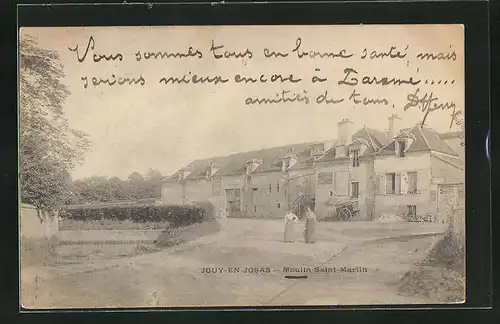 Vous sommes tous en bonne santé, mais
serions mieux encore à Tarare.....
amitiés de tous.
JOUY-EN-JOSAS - Moulin Saint-Martin